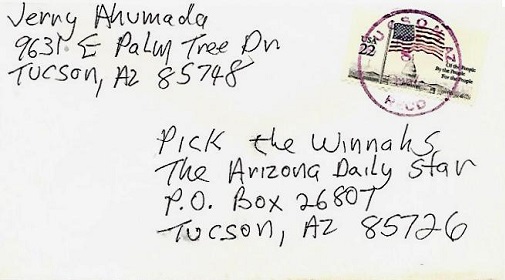 Jerry Ahumada
9631 E Palm Tree Dr
Tucson, AZ 85748
TUCSON AZ
RCUD
USA
22
Of the People
By the People
For the People
Pick the Winnahs
The Arizona Daily Star
P.O. Box 26807
Tucson, AZ 85726